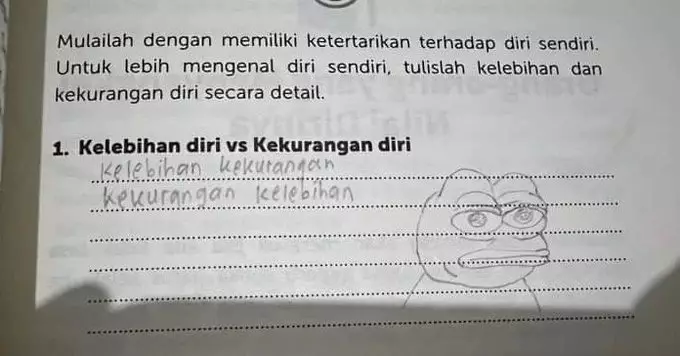 Mulailah dengan memiliki ketertarikan terhadap diri sendiri.
Untuk lebih mengenal diri sendiri, tulislah kelebihan dan
kekurangan diri secara detail.
1. Kelebihan diri vs Kekurangan diri
kelebihan kekurangan
kekurangan kelebihan